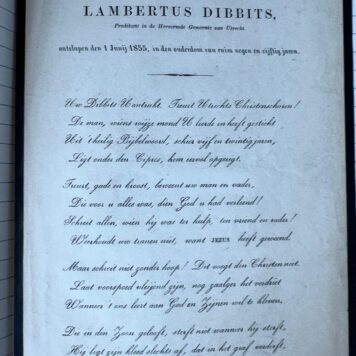 LAMBERTUS DIBBITS,
Predikant in de Hervormde Gemeente van Utrecht
ontslapen den 1 Junij 1855, in den ouderdom van ruim negen en vijftig jaren.
Uw Dibbets U ontrukt. Treurt Utrechts Christenscharen!
De man, wiens wijze mond U leerde en heeft gesticht
Uit 't heilig Bijbelwoord, schier vijf en twintig jaren,
Ligt onder den Cipres, hem eerool
Treurt, gade en kroost, beweent uw man en vader,
Die voor u alles was, dien God u had verleend!
Schreit allen, wien hij was ter hulp, ten vriend en vader!
Weerhoudt uw tranen niet, want JEZUS heeft geweend.
Maar schreit niet zonder hoop! Dit voegt den Christen niet.
Laat voorspoed vleijend zijn, nog zaalger het verdriet
Wanneer 't ons leert aan God en Zijnen wil te kleven.
Die in den Zoon gelooft, sterft niet wanneer hij sterft,
Hij ligt zijn kleed slechts af, dat in het graf verderft,